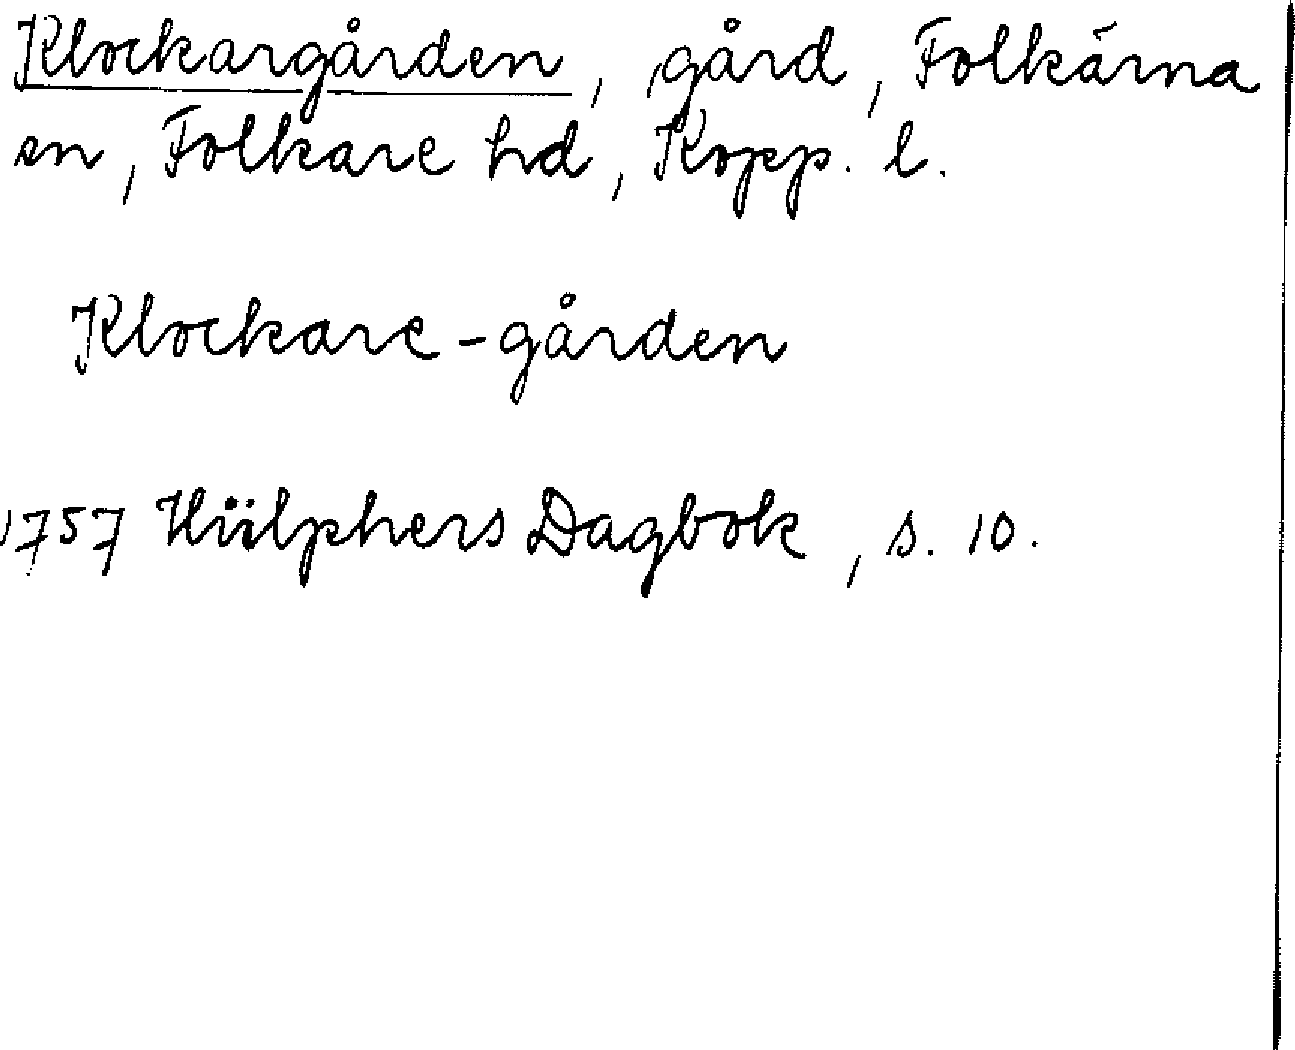 Klockargården, gård, Folkärna
sn, Folkare hd, Kopp. l.
Klockare-gården
1757 Hülphers Dagbok, s. 10.